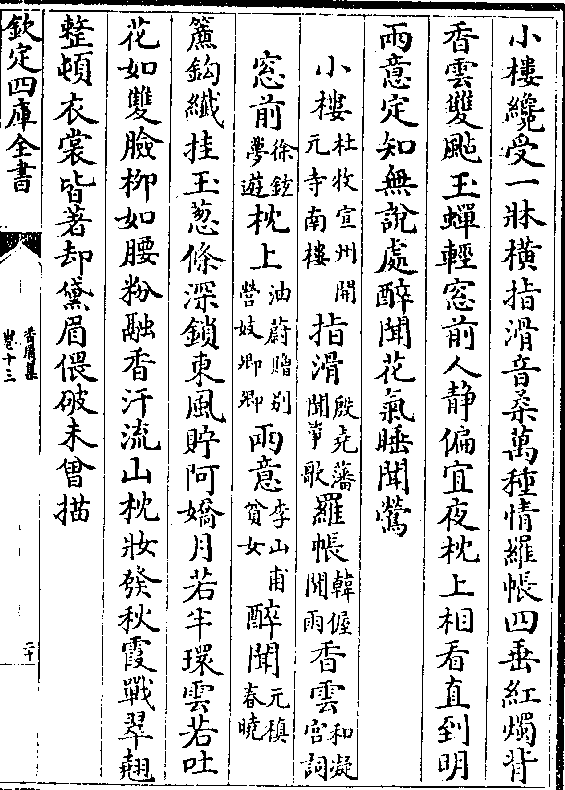 小樓纔受一牀橫指滑音柔萬種情羅帳四垂紅燭背
香雲雙颭玉蟬輕窓前人静偏宜夜枕上相看直到明
兩意定知無說處醉聞花氣睡聞鶯
小樓杜牧宣州開元寺南樓指滑殷堯藩聞箏歌羅帳韓偓聞雨香雲和凝宫詞
窓前徐鉉夢遊枕上油蔚贈别營妓卿卿兩意李山甫貧女醉聞元稹春曉
簾鈎纖挂玉葱條深鎖東風貯阿嬌月若半環雲若吐
花如雙臉栁如腰粉融香汗流山枕妝發秋霞戰翠翹
整頓衣裳皆著却黛眉偎破未曾描
欽定四庫全書
香屑集
卷十三